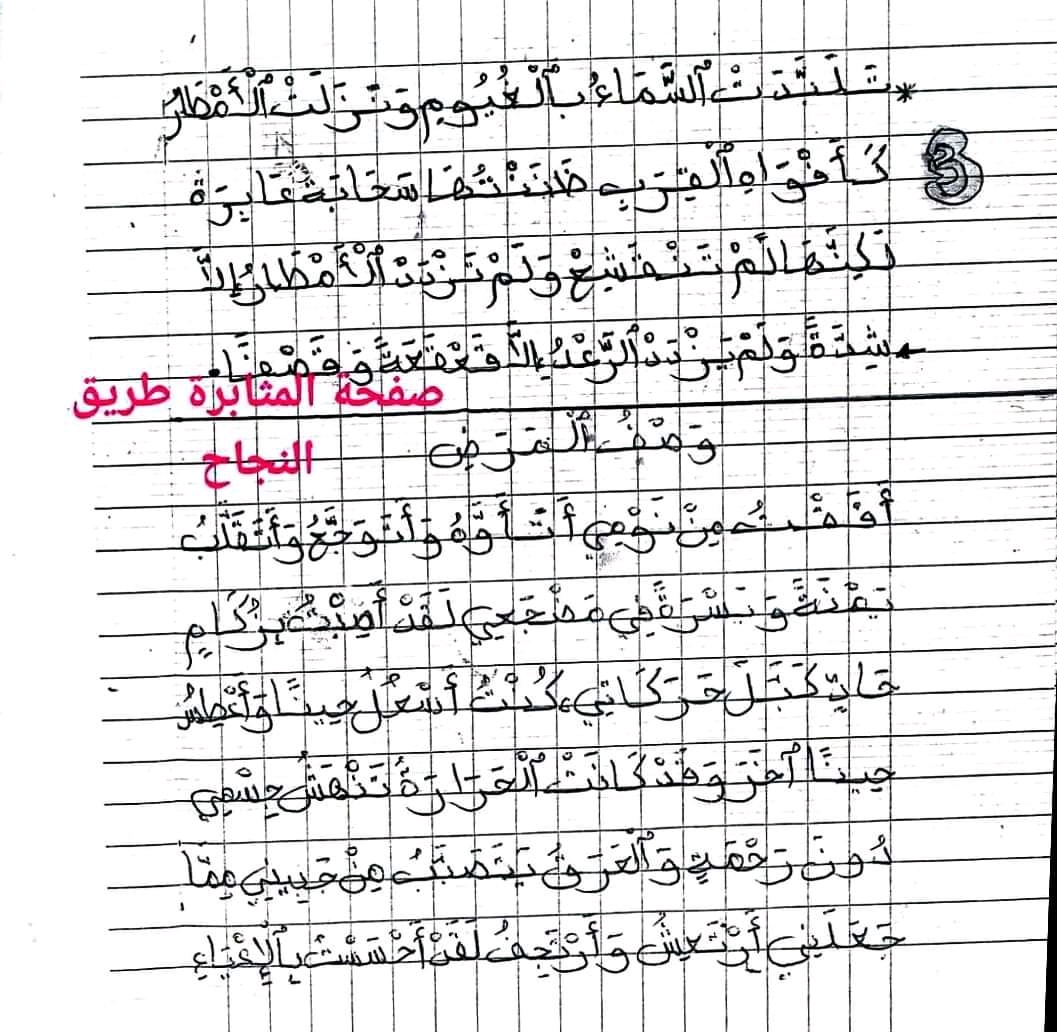 * تَلَبَّدَتْ ٱلسَّمَاءُ بِٱلْغُيُومِ وَنَزَلَتْ ٱلْأَمْطَارُ
3 كَأَفْوَاهِ ٱلْقِرَبِ ظَنَنْتُهَا سَحَابَةً عَابِرَةً
لَكِنَّهَا لَمْ تَنْقَشِعْ وَلَمْ تَزْدَدْ ٱلْأَمْطَارُ إِلاَّ
شِدَّةً وَلَمْ يَزْدَدْ ٱلرَّعْدُ إِلاَّ قَعْقَعَةً وَقَصْفًا.
صفحة المثابرة طريق
النجاح
وَصْفُ ٱلْمَرَضِ
أَفَقْتُ مِنْ نَوْمِي أَتَأَوَّهُ وَأَتَوَجَّعُ وَأَتَقَلَّبُ
يَمْنَةً وَيَسْرَةً فِي مَضْجَعِي لَقَدْ أُصِبْتُ بِزُكَامٍ
حَادٍّ كَبَّلَ حَرَكَاتِي، كُنْتُ أَسْعُلُ حِينًا وَأَعْطِسُ
حِينًا آخَرَ وَقَدْ كَانَتْ ٱلْحَرَارَةُ تَنْهَشُ جِسْمِي
دُونَ رَحْمَةٍ وَٱلْعَرَقُ يَتَصَبَّبُ مِنْ جَبِينِي مِمَّا
جَعَلَنِي أَرْتَعِشُ وَأَرْتَجِفُ لَقَدْ أَحْسَسْتُ بِٱلْإِعْيَاءِ